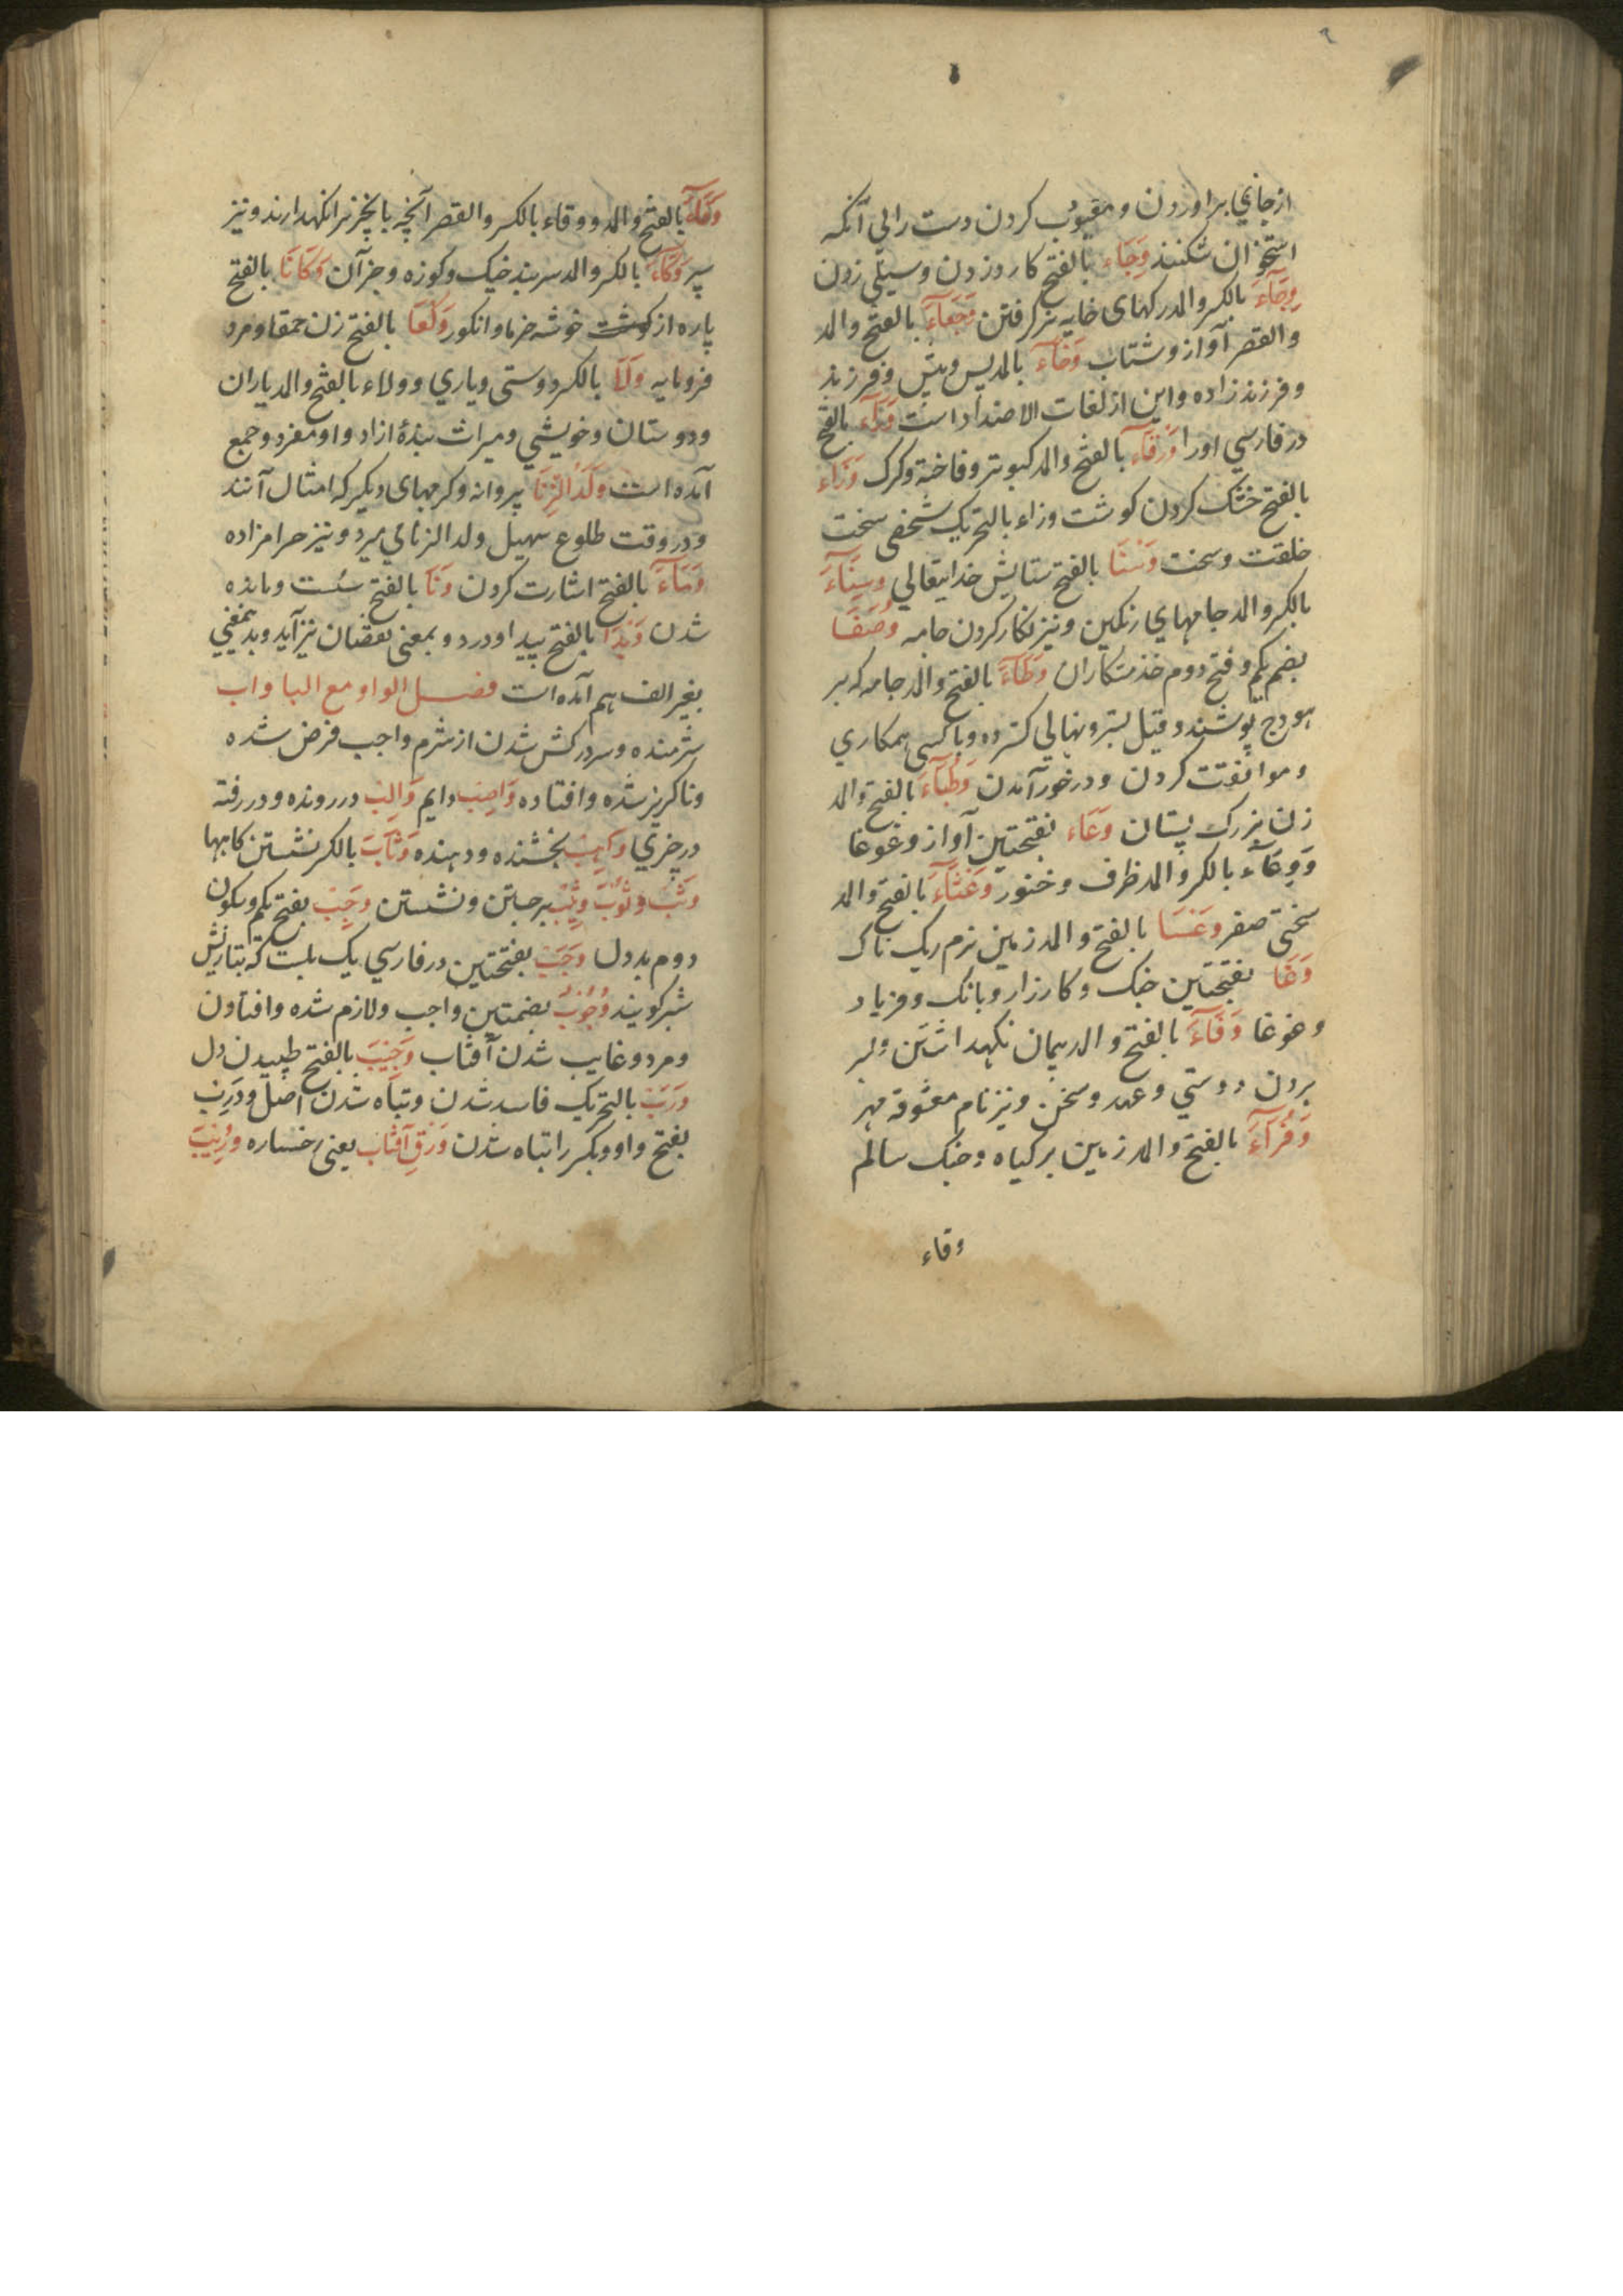 از جاي براوردن و معيوب كردن دست را بي آنكه
استخوان شكنند وَجَاء بالفتح كارد زدن و سيلي زدن
وِجَآءَ بالكسر والمد ركهاى خايه نر كرفتن بالفتح والمد
والقصر آواز و شتاب بالمد پس و پيش و فرزند
و فرزندزاده و اين از لغات الاضداد است بالفتح
در فارسي اورا وَرْقَآءَ بالفتح والمد كبوتر و فاخته و كرك وَزَاء
بالفتح خشك كردن كوشت وزاء بالتحريك شخصى سخت
خلقت و سخت بالفتح ستايش خدايتعالي
بالكسر والمد جامهاي رنكين و نيز نكار كردن جامه وُصَفَا
بضم يكم و فتح دوم خدمتكاران وَطَآءَ بالفتح والمد جامه كه بر
هودج پوشند و قيل بستر و نهالي كسترده و با كسى همكاري
و موافقت كردن و درخور آمدن وَطْبَآءَ بالفتح والمد
زن بزرك پستان وَعَاء بفتحتين آواز و غوغا
وَوِعَآء بالكسر والمد ظرف و خنور وَعْثَآءَ بالفتح والمد
سختى صفر وَعَسَا بالفتح والمد زمين نرم ريك ناك
وَغَا بفتحتين جنك و كارزار و بانك و فرياد
و غوغا وَفَآءَ بالفتح والمد پيمان نكهداشتن و بسر
بردن دوستي و عهد و سخن و نيز نام معشوقه مهر
وَفْرَآءَ بالفتح والمد زمين پر كياه و خنك سالم
وقاء
وَقَآءَ بالفتح والمد ووقاء بالكسر والقصر آنچه با چيز را نكهدارند و نيز
سپر وِكَآءَ بالكسر والمد سربند خيك و كوزه و جز آن وَكَاتَا بالفتح
پاره از كوشت خوشه خرما و انكور وَلْعَا بالفتح زن حمقا و مرد
فرومايه وِلَا بالكسر دوستى و ياري وولاء بالفتح والمد ياران
و دوستان و خويشي و ميراث بندهٔ ازاد و او مفرد و جمع
آمده است وَلَدُ الزِّنَا پروانه و كرمهاى ديكر كه امثال آنند
و در وقت طلوع سهيل ولد الزناي ميرد و نيز حرامزاده
وَمَآءَ بالفتح اشارت كردن وَنَا بالفتح سست و مانده
شدن وَيْدَا بالفتح پيدا و درد و بمعنى نقصان نيز آيد و بدين معني
بغير الف هم آمده است فصل الواو مع البا واب
شرمنده و سر در كش شدن از شرم واجب فرض شده
و ناكريز شده و افتاده وَاصِبْ دايم وَالِبْ در رونده و در رفته
در چيزي وَاهِبْ بخشنده و دهنده وِثَابَ بالكسر نشستن كاهها
وَثْبُ وُثُوْبَ وَثِيْب برجستن و نشستن وَجِبَ بفتح يكم و سكون
دوم بد دل وَجَبَ بفتحتين در فارسي يك بلست كه بتازيش
شبر كويند وُجُوْبُ بضمتين واجب و لازم شده و افتادن
و مرد و غايب شدن آفتاب وَجِيْبَ بالفتح طپيدن دل
وَرَبَ بالتحريك فاسد شدن و تباه شدن اصل وَوَرِب
بفتح واو و بكسر را تباه شدن وَرَقِ آفْتَاب يعنى رخساره